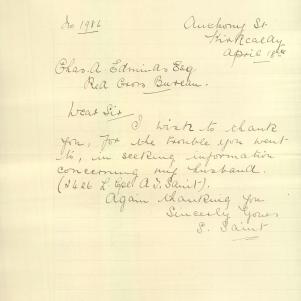 No 1986
Anckorny St
Kirkcaldy
April 18th
Chas. A. Edminds Esq
Red Cross Bureau.
Dear Sir
I wish to thank
you, for the trouble you went
to, in seeking information
concerning my husband.
(3426 L. Cpl A. J. Saint).
Again thanking you
Sincerly Yours
S. Saint